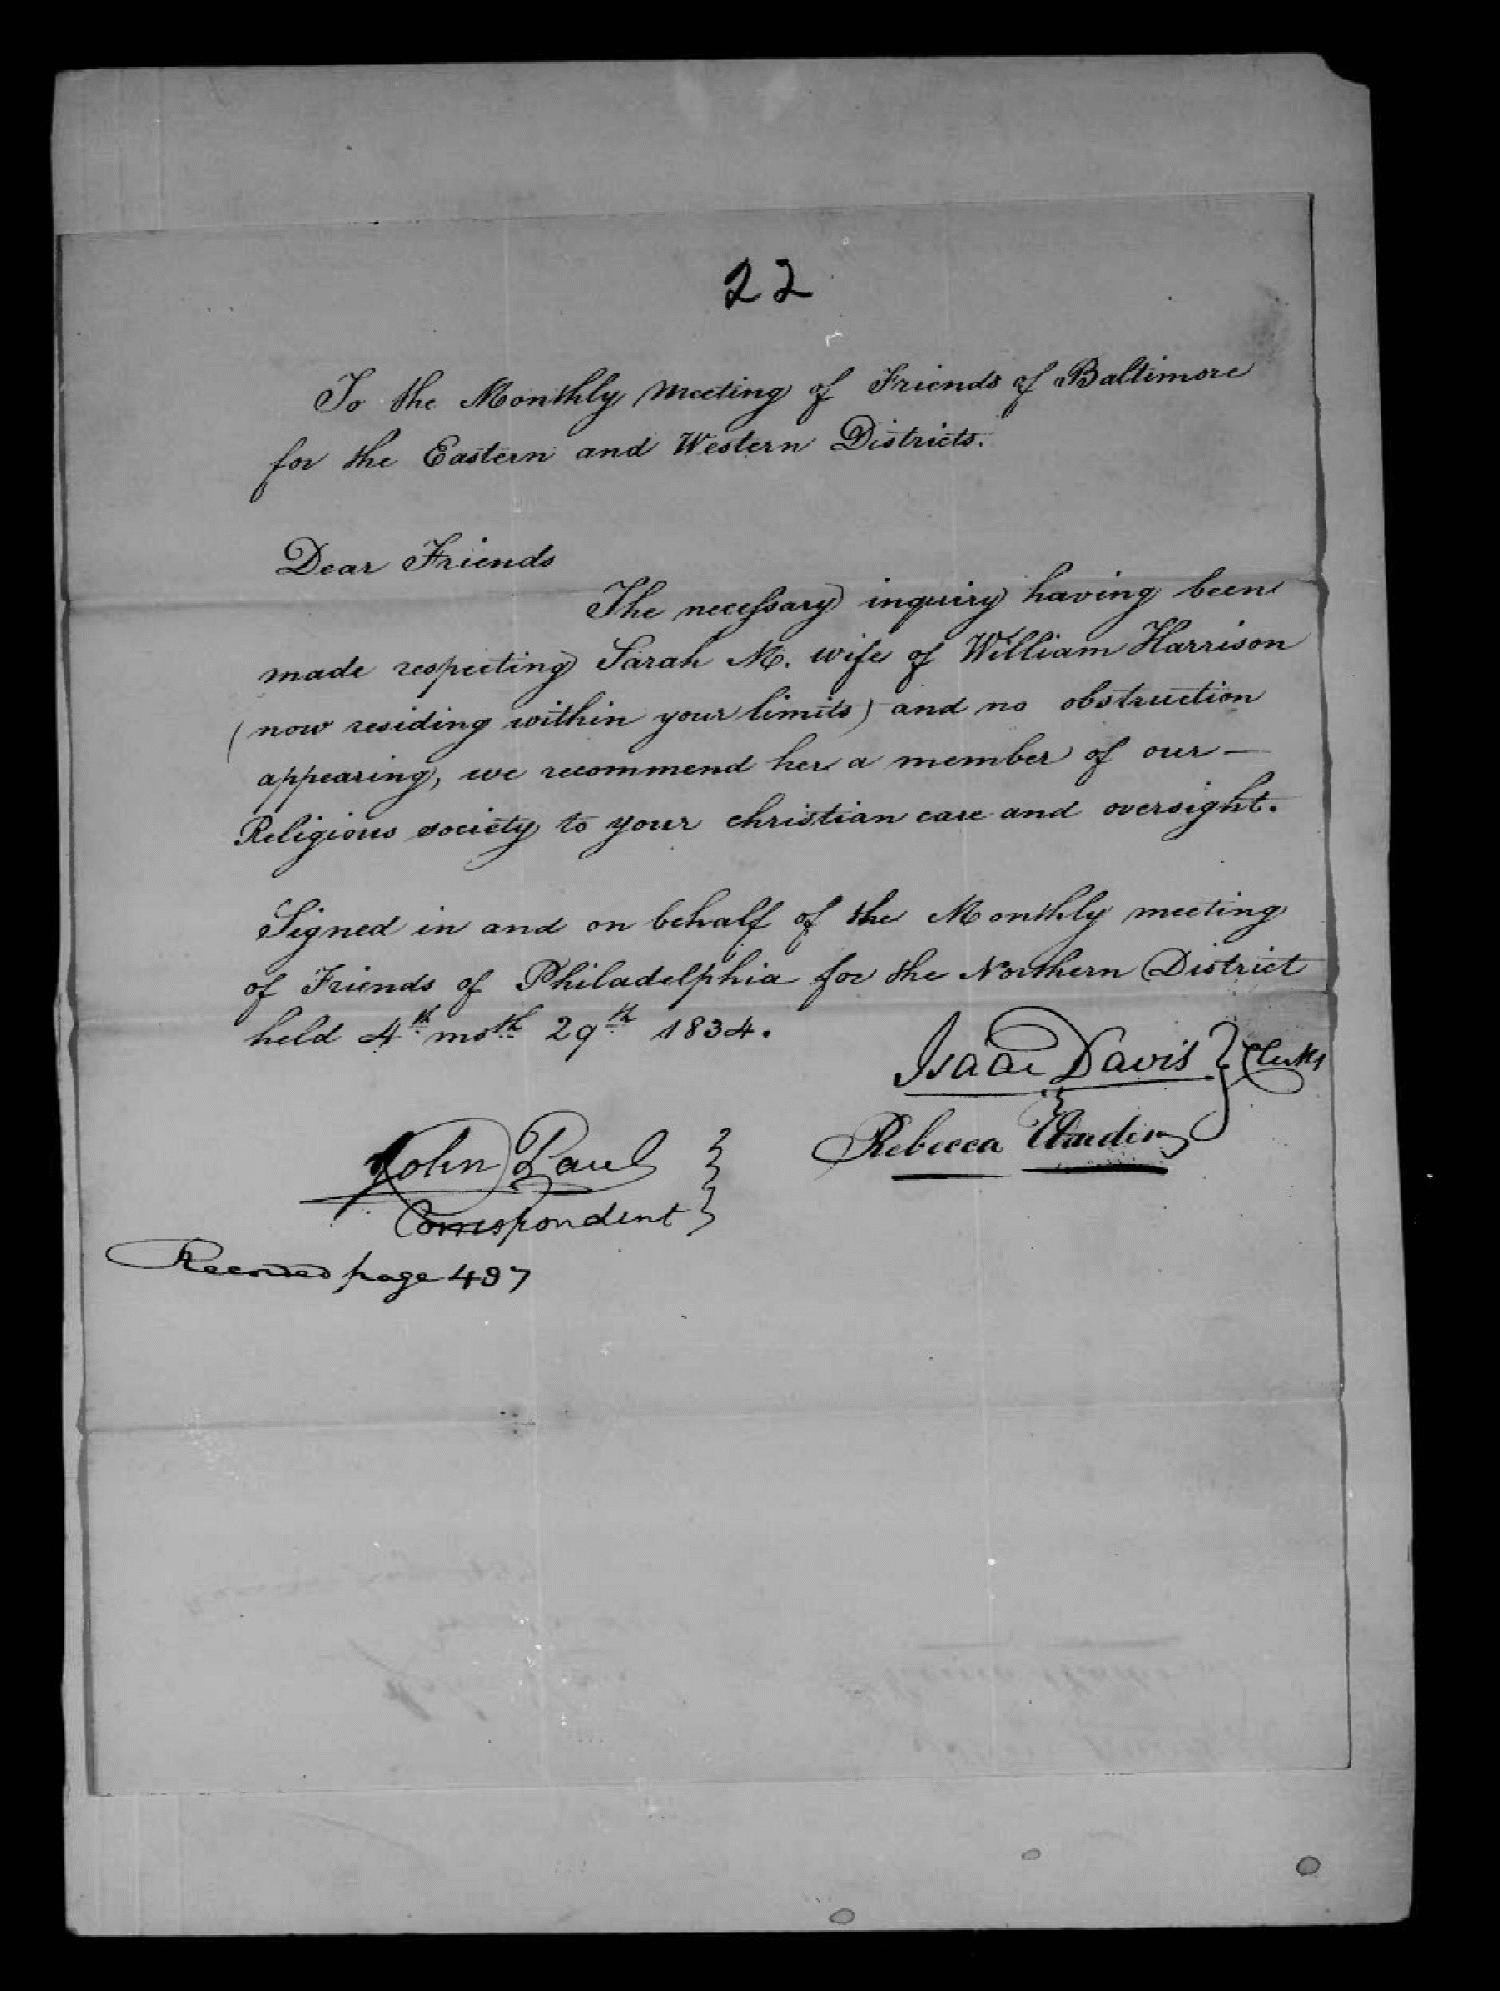 22
To the Monthly Meeting of Friends of Baltimore
for the Eastern and Western Districts.
Dear Friends
The necessary inquiry having been
made respecting Sarah M. wife of William Harrison
(now residing within your limits) and no obstruction
appearing, we recommend her a member of our —
Religious society to your christian care and oversight.
Signed in and on behalf of the Monthly meeting
of Friends of Philadelphia for the Northern District
held 4th moth 29th 1834.
Isaac Davis } Clerks
Rebecca
John Paul }
Correspondent }
Recorded page 497